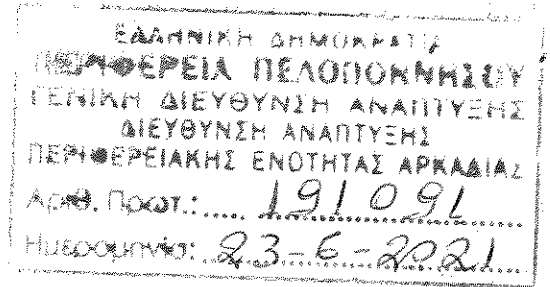 ΕΛΛΗΝΙΚΗ ΔΗΜΟΚΡΑΤΙΑ
ΠΕΡΙΦΕΡΕΙΑ ΠΕΛΟΠΟΝΝΗΣΟΥ
ΓΕΝΙΚΗ ΔΙΕΥΘΥΝΣΗ ΑΝΑΠΤΥΞΗΣ
ΔΙΕΥΘΥΝΣΗ ΑΝΑΠΤΥΞΗΣ
ΠΕΡΙΦΕΡΕΙΑΚΗΣ ΕΝΟΤΗΤΑΣ ΑΡΚΑΔΙΑΣ
Αριθ. Πρωτ.:.... 191091
Ημερομηνία: 23-6-2021